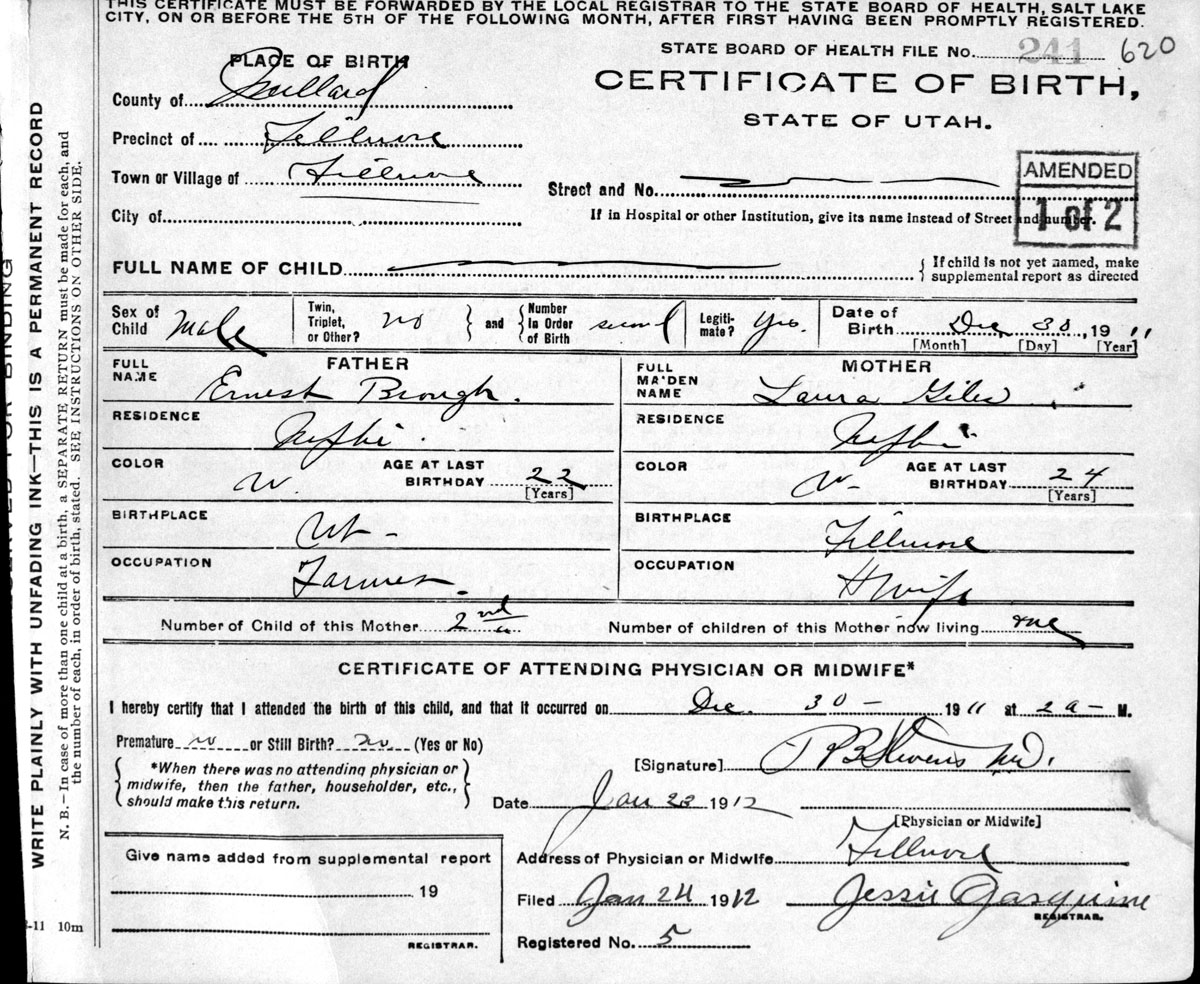 THIS CERTIFICATE MUST BE FORWARDED BY THE LOCAL REGISTRAR TO THE STATE BOARD OF HEALTH, SALT LAKE
CITY, ON OR BEFORE THE 5TH OF THE FOLLOWING MONTH, AFTER FIRST HAVING BEEN PROMPTLY REGISTERED.
STATE BOARD OF HEALTH FILE No. 241 620
PLACE OF BIRTH
CERTIFICATE OF BIRTH,
STATE OF UTAH.
County of Millard
Precinct of Fillmore
Town or Village of Fillmore
Street and No.
AMENDED
1 of 2
City of
If in Hospital or other Institution, give its name instead of Street and number.
FULL NAME OF CHILD
{ If child is not yet named, make
supplemental report as directed
Sex of Child Male
Twin, Triplet, or Other? no } and { Number in Order of Birth second
Legiti-mate? Yes.
Date of Birth Dec 30, 1911
[Month] [Day] [Year]
FATHER
FULL NAME Ernest Brough.
MOTHER
FULL MAIDEN NAME Laura Giles
RESIDENCE Nephi.
RESIDENCE Nephi
COLOR W. AGE AT LAST BIRTHDAY 22
[Years]
COLOR W- AGE AT LAST BIRTHDAY 24
[Years]
BIRTHPLACE Ut-
BIRTHPLACE Fillmore
OCCUPATION Farmer.
OCCUPATION H wife
Number of Child of this Mother 2nd
Number of children of this Mother now living one
CERTIFICATE OF ATTENDING PHYSICIAN OR MIDWIFE*
I hereby certify that I attended the birth of this child, and that it occurred on Dec. 30 - 1911 at 2 a - M.
Premature no or Still Birth? no (Yes or No)
{ *When there was no attending physician or
midwife, then the father, householder, etc.,
should make this return. }
[Signature] Stevens M.D.
Date Jan 23 1912
[Physician or Midwife]
Give name added from supplemental report
19
REGISTRAR.
Address of Physician or Midwife Fillmore
Filed Jan 24 1912 Jessie Gasquine
REGISTRAR.
Registered No. 5
-11 10m
RESERVED FOR BINDING
WRITE PLAINLY WITH UNFADING INK—THIS IS A PERMANENT RECORD
N. B.—In case of more than one child at a birth, a SEPARATE RETURN must be made for each, and
the number of each, in order of birth, stated. SEE INSTRUCTIONS ON OTHER SIDE.